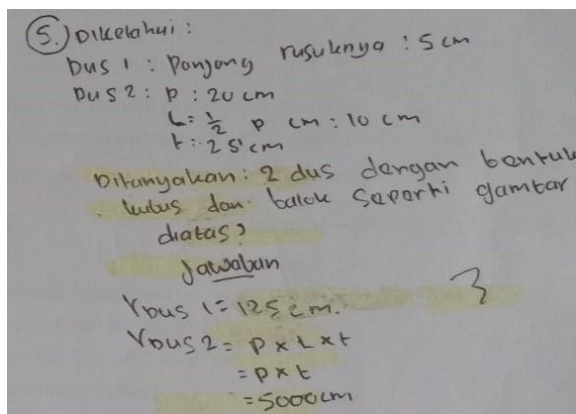 5.) Diketahui :
Dus 1 : Panjang rusuknya : 5 cm
Dus 2 : P : 20 cm
L = 1/2 P cm : 10 cm
t : 25 cm
Ditanyakan : 2 dus dengan bentuk
kubus dan balok seperti gambar
diatas?
Jawaban
V Dus 1 = 125 cm.
3
V Dus 2 = P x L x t
= P x t
= 5000 cm